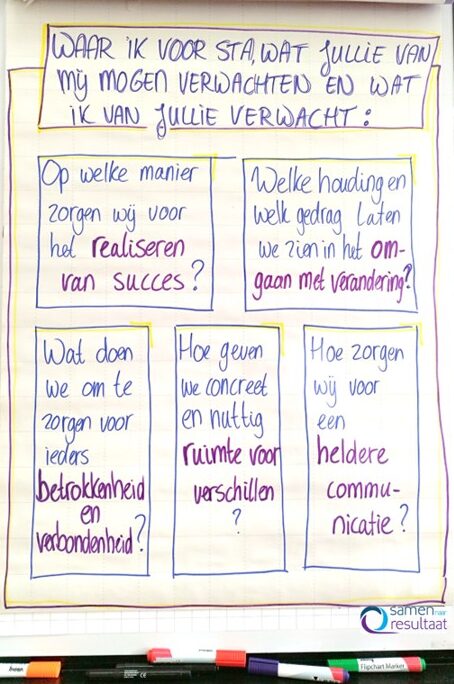 WAAR IK VOOR STA, WAT JULLIE VAN
MIJ MOGEN VERWACHTEN EN WAT
IK VAN JULLIE VERWACHT:
Op welke manier
zorgen wij voor
het realiseren
van succes?
Welke houding en
welk gedrag laten
we zien in het om-
gaan met verandering?
Wat doen
we om te
zorgen voor
ieders
betrokkenheid
en
verbondenheid?
Hoe geven
we concreet
en nuttig
ruimte voor
verschillen
?
Hoe zorgen
wij voor
een
heldere
commu-
nicatie?
samen naar
resultaat
Flipchart Marker